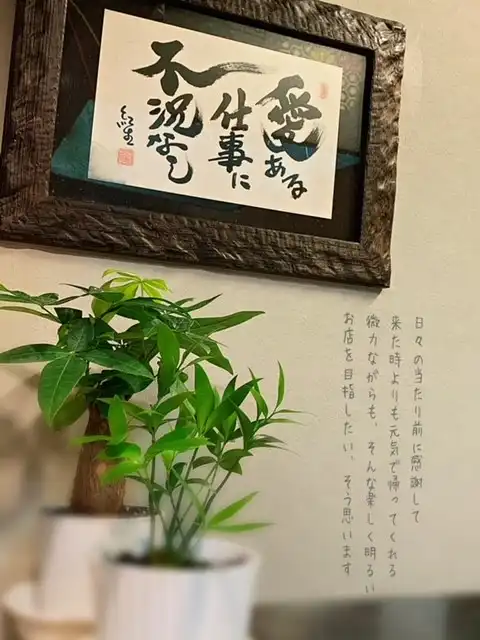 愛ある
仕事に
不況なし
日々の当たり前に感謝して
来た時よりも元気で帰ってくれる
微力ながらも、そんな楽しく明るい
お店を目指したい、そう思います